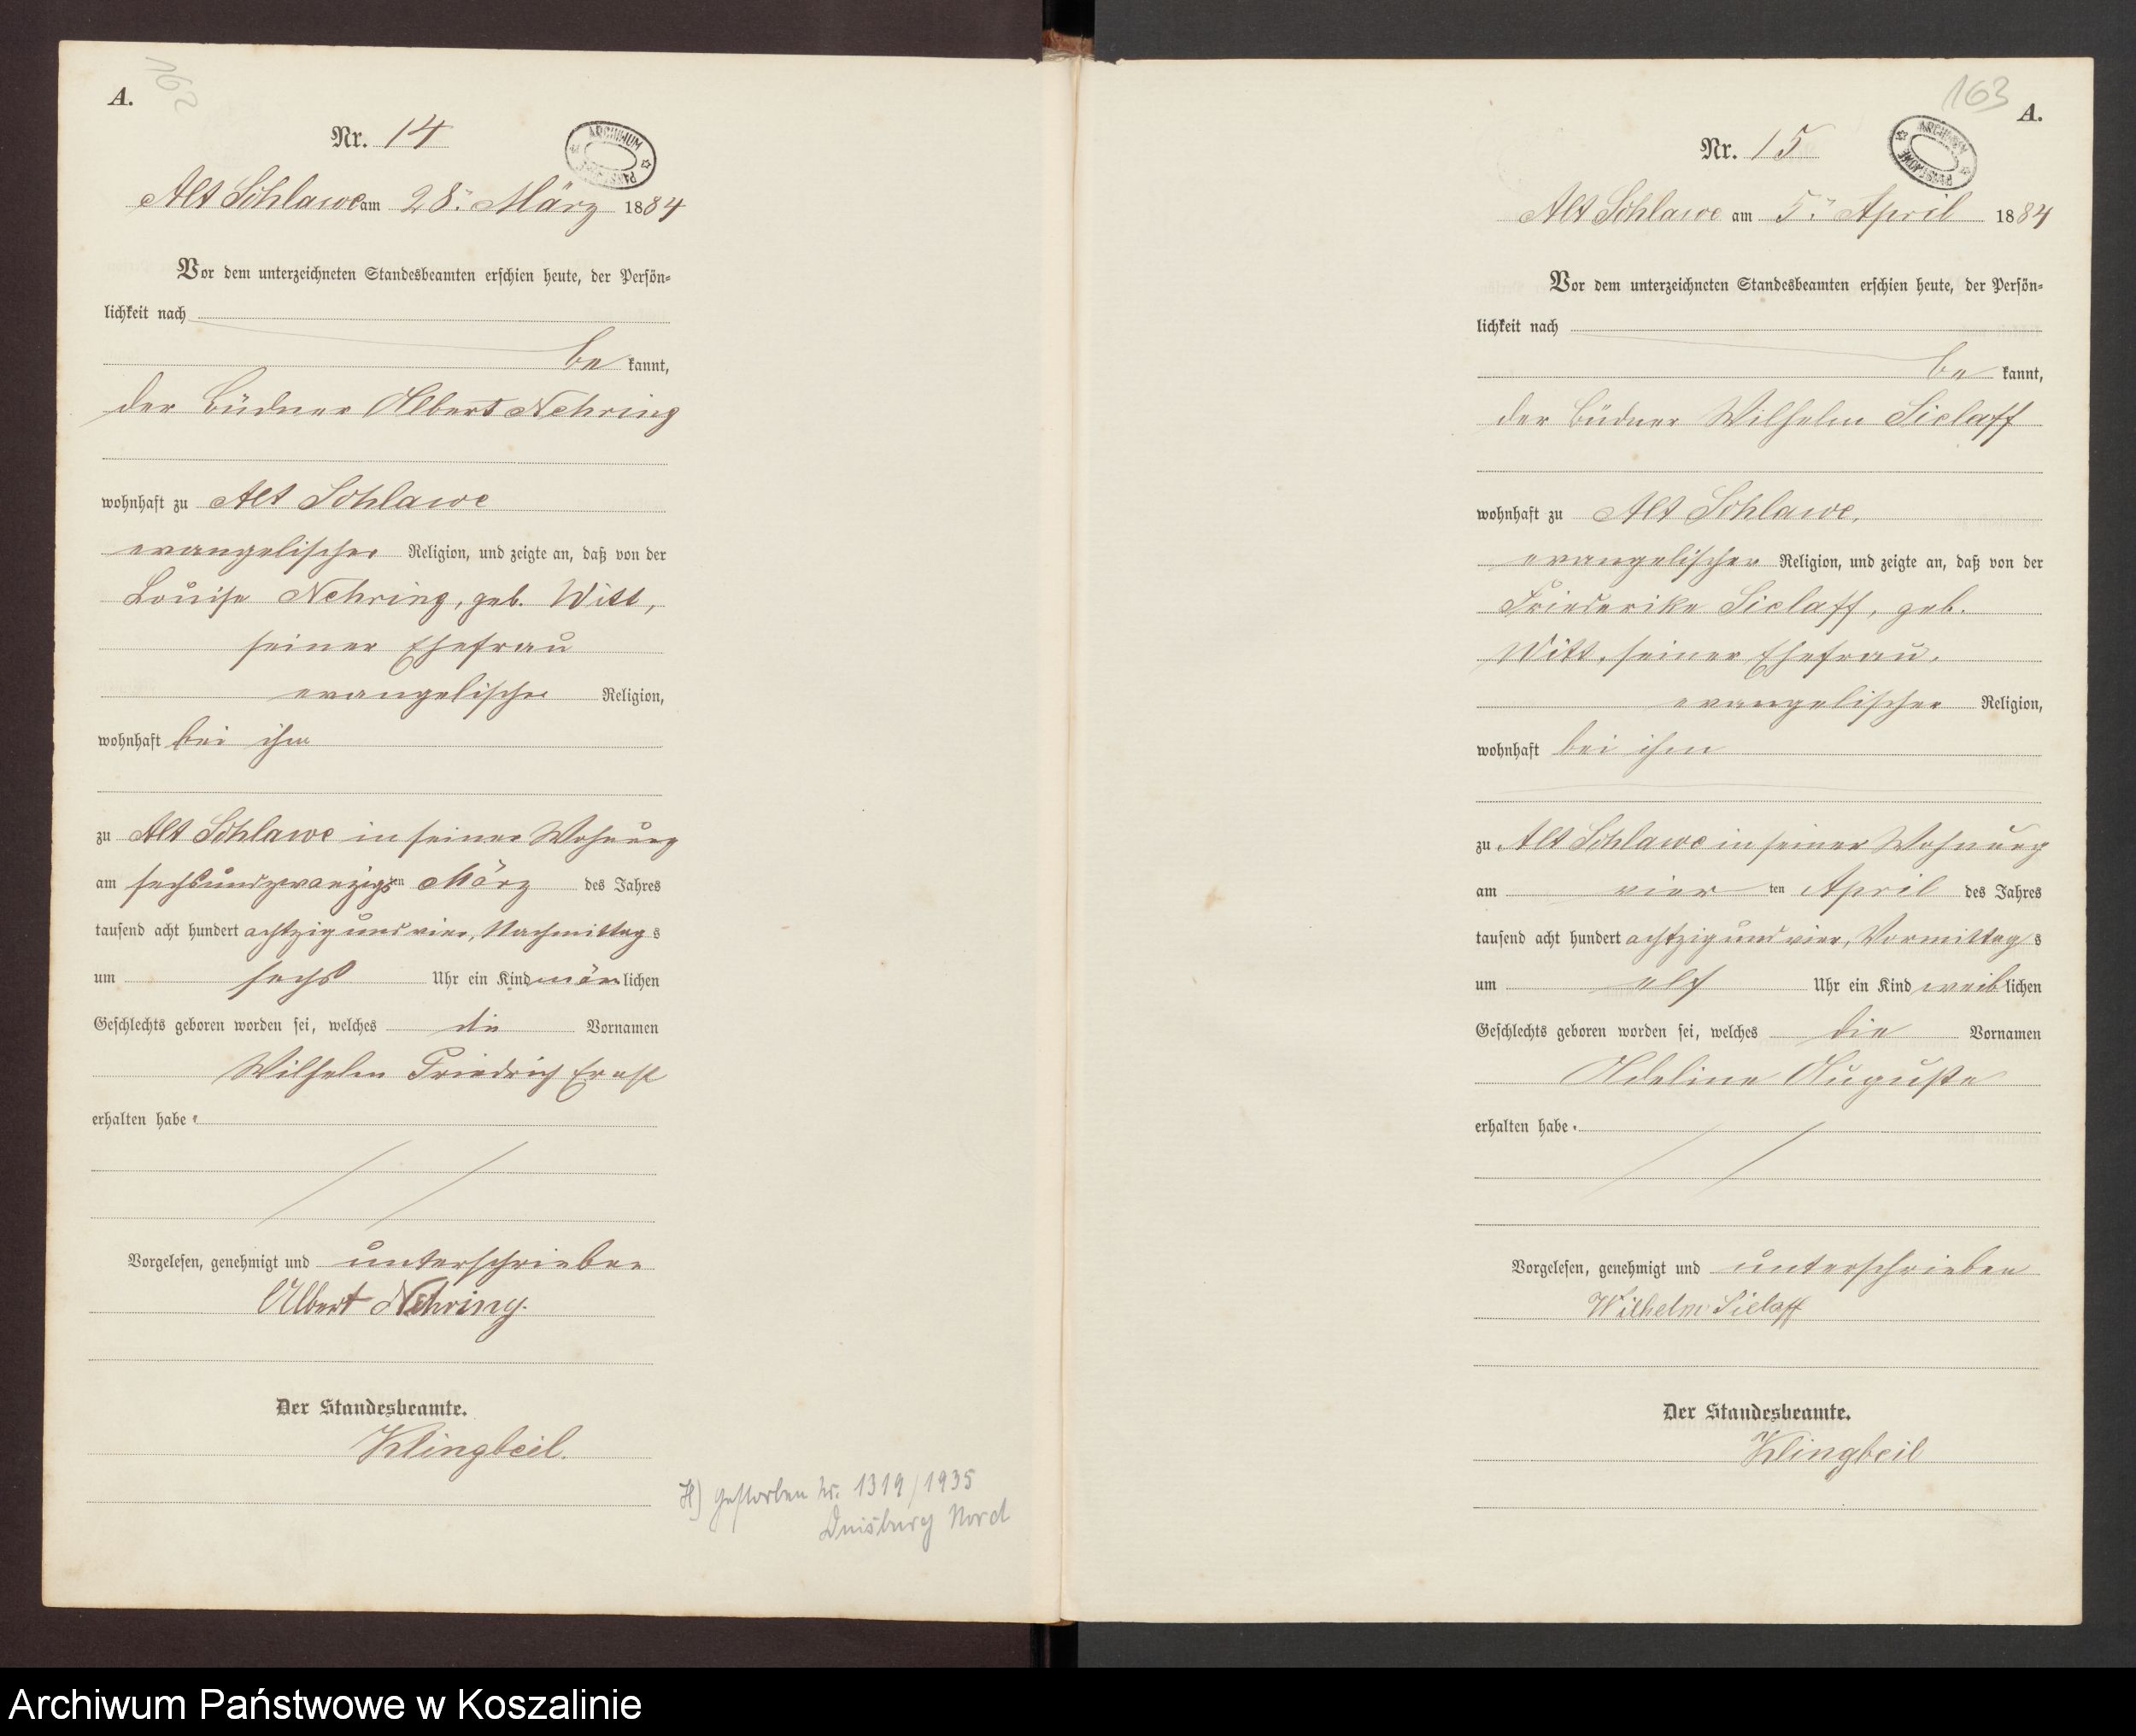 A.
162
Nr. 14
ARCHIWUM PAŃSTWOWE
Alt Schlawe am 28. März 1884
Vor dem unterzeichneten Standesbeamten erschien heute, der Persön-
lichkeit nach
be kannt,
der Büdner Albert Nehring
wohnhaft zu Alt Schlawe
evangelischer Religion, und zeigte an, daß von der
Louise Nehring, geb. Witt,
seiner Ehefrau
evangelischer Religion,
wohnhaft bei ihm
zu Alt Schlawe in seiner Wohnung
am sechsundzwanzigsten März des Jahres
tausend acht hundert achtzig und vier, Nachmittags
um sechs Uhr ein Kind männlichen
Geschlechts geboren worden sei, welches die Vornamen
Wilhelm Friedrich Ernst
erhalten habe.
Vorgelesen, genehmigt und unterschrieben
Albert Nehring.
Der Standesbeamte.
Klingbeil.
H) gestorben Nr. 1319/1935
Duisburg Nord
163
A.
Nr. 15
ARCHIWUM PAŃSTWOWE
Alt Schlawe am 5. April 1884
Vor dem unterzeichneten Standesbeamten erschien heute, der Persön-
lichkeit nach
be kannt,
der Büdner Wilhelm Sielaff
wohnhaft zu Alt Schlawe,
evangelischer Religion, und zeigte an, daß von der
Friederike Sielaff, geb.
Witt, seiner Ehefrau,
evangelischer Religion,
wohnhaft bei ihm
zu Alt Schlawe in seiner Wohnung
am vier ten April des Jahres
tausend acht hundert achtzig und vier, Vormittags
um elf Uhr ein Kind weiblichen
Geschlechts geboren worden sei, welches die Vornamen
Adeline Auguste
erhalten habe.
Vorgelesen, genehmigt und unterschrieben
Wilhelm Sielaff
Der Standesbeamte.
Klingbeil
Archiwum Państwowe w Koszalinie